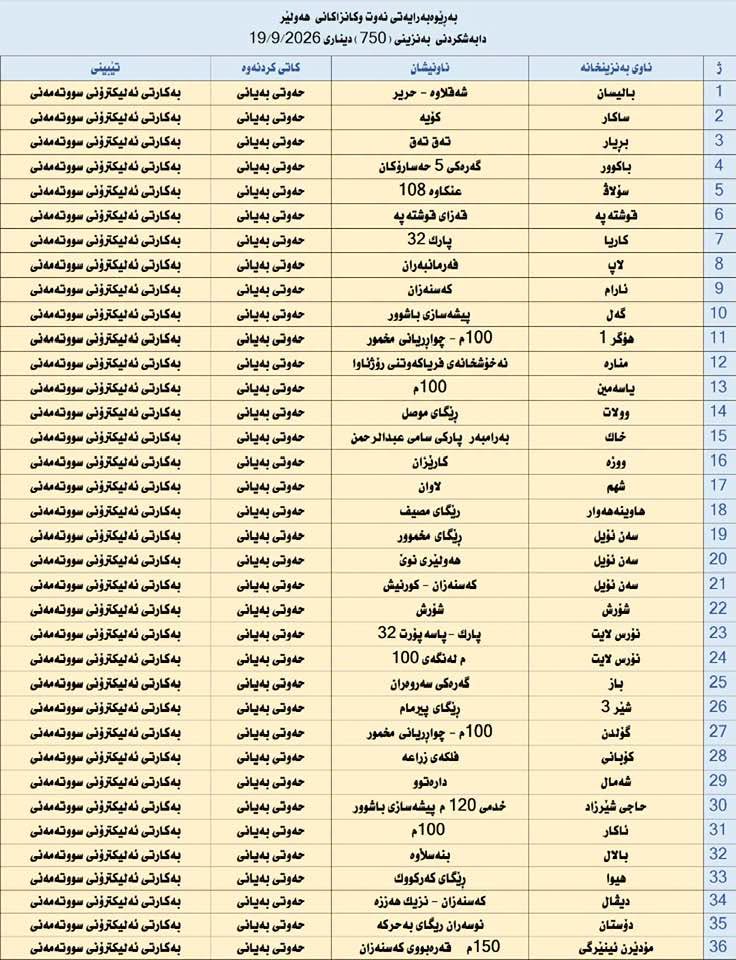 بەڕێوەبەرایەتی نەوت وکانزاکانی هەولێر
دابەشکردنی بەنزینی (750) دیناری 19/9/2026
ژ ناوی بەنزینخانە ناونیشان کاتی کردنەوە تێبینی
1 بالیسان شەقلاوە - حریر حەوتی بەیانی بەکارتی ئەلیکترۆنی سووتەمەنی
2 ساکار کۆیە حەوتی بەیانی بەکارتی ئەلیکترۆنی سووتەمەنی
3 بریار تەق تەق حەوتی بەیانی بەکارتی ئەلیکترۆنی سووتەمەنی
4 باکوور گەرەکی 5 حەسارۆکان حەوتی بەیانی بەکارتی ئەلیکترۆنی سووتەمەنی
5 سۆلاڤ عنکاوە 108 حەوتی بەیانی بەکارتی ئەلیکترۆنی سووتەمەنی
6 قوشتەپە قەزای قوشتەپە حەوتی بەیانی بەکارتی ئەلیکترۆنی سووتەمەنی
7 کاریا پارك 32 حەوتی بەیانی بەکارتی ئەلیکترۆنی سووتەمەنی
8 لاپ فەرمانبەران حەوتی بەیانی بەکارتی ئەلیکترۆنی سووتەمەنی
9 ئارام کەسنەزان حەوتی بەیانی بەکارتی ئەلیکترۆنی سووتەمەنی
10 گەل پیشەسازی باشوور حەوتی بەیانی بەکارتی ئەلیکترۆنی سووتەمەنی
11 هۆگر 1 100م - چواڕیانی مخمور حەوتی بەیانی بەکارتی ئەلیکترۆنی سووتەمەنی
12 منارە نەخۆشخانەی فریاکەوتنی رۆژئاوا حەوتی بەیانی بەکارتی ئەلیکترۆنی سووتەمەنی
13 یاسەمین 100م حەوتی بەیانی بەکارتی ئەلیکترۆنی سووتەمەنی
14 وولات ڕێگای موصل حەوتی بەیانی بەکارتی ئەلیکترۆنی سووتەمەنی
15 خاك بەرامبەر پارکی سامی عبدالرحمن حەوتی بەیانی بەکارتی ئەلیکترۆنی سووتەمەنی
16 ووزە گارێزان حەوتی بەیانی بەکارتی ئەلیکترۆنی سووتەمەنی
17 شهم لاوان حەوتی بەیانی بەکارتی ئەلیکترۆنی سووتەمەنی
18 هاوینەهەوار رێگای مصیف حەوتی بەیانی بەکارتی ئەلیکترۆنی سووتەمەنی
19 سەن ئۆیل ڕێگای مخموور حەوتی بەیانی بەکارتی ئەلیکترۆنی سووتەمەنی
20 سەن ئۆیل هەولێری نوێ حەوتی بەیانی بەکارتی ئەلیکترۆنی سووتەمەنی
21 سەن ئۆیل کەسنەزان - کورنیش حەوتی بەیانی بەکارتی ئەلیکترۆنی سووتەمەنی
22 شۆرش شۆرش حەوتی بەیانی بەکارتی ئەلیکترۆنی سووتەمەنی
23 نۆرس لایت پارك - پاسەپۆرت 32 حەوتی بەیانی بەکارتی ئەلیکترۆنی سووتەمەنی
24 نۆرس لایت م لەنگەی 100 حەوتی بەیانی بەکارتی ئەلیکترۆنی سووتەمەنی
25 باز گەرەکی سەروەران حەوتی بەیانی بەکارتی ئەلیکترۆنی سووتەمەنی
26 شێر 3 ڕێگای پیرمام حەوتی بەیانی بەکارتی ئەلیکترۆنی سووتەمەنی
27 گۆلدن 100م - چواڕیانی مخمور حەوتی بەیانی بەکارتی ئەلیکترۆنی سووتەمەنی
28 کۆبانی فلکەی زراعە حەوتی بەیانی بەکارتی ئەلیکترۆنی سووتەمەنی
29 شەمال دارەتوو حەوتی بەیانی بەکارتی ئەلیکترۆنی سووتەمەنی
30 حاجی شێرزاد خدمی 120 م پیشەسازی باشوور حەوتی بەیانی بەکارتی ئەلیکترۆنی سووتەمەنی
31 ئاکار 100م حەوتی بەیانی بەکارتی ئەلیکترۆنی سووتەمەنی
32 بالال بنەسڵاوە حەوتی بەیانی بەکارتی ئەلیکترۆنی سووتەمەنی
33 هیوا ڕێگای کەرکووك حەوتی بەیانی بەکارتی ئەلیکترۆنی سووتەمەنی
34 دیڤال کەسنەزان - نزیك هەززە حەوتی بەیانی بەکارتی ئەلیکترۆنی سووتەمەنی
35 دۆستان نوسەران ریگای بەحرکە حەوتی بەیانی بەکارتی ئەلیکترۆنی سووتەمەنی
36 مۆدێرن ئینێرگی 150م قەرەبووی کەسنەزان حەوتی بەیانی بەکارتی ئەلیکترۆنی سووتەمەنی